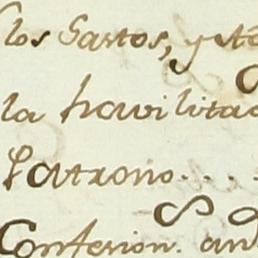 los Gastos, y
la havilitac
Patrono....
Confesion. an